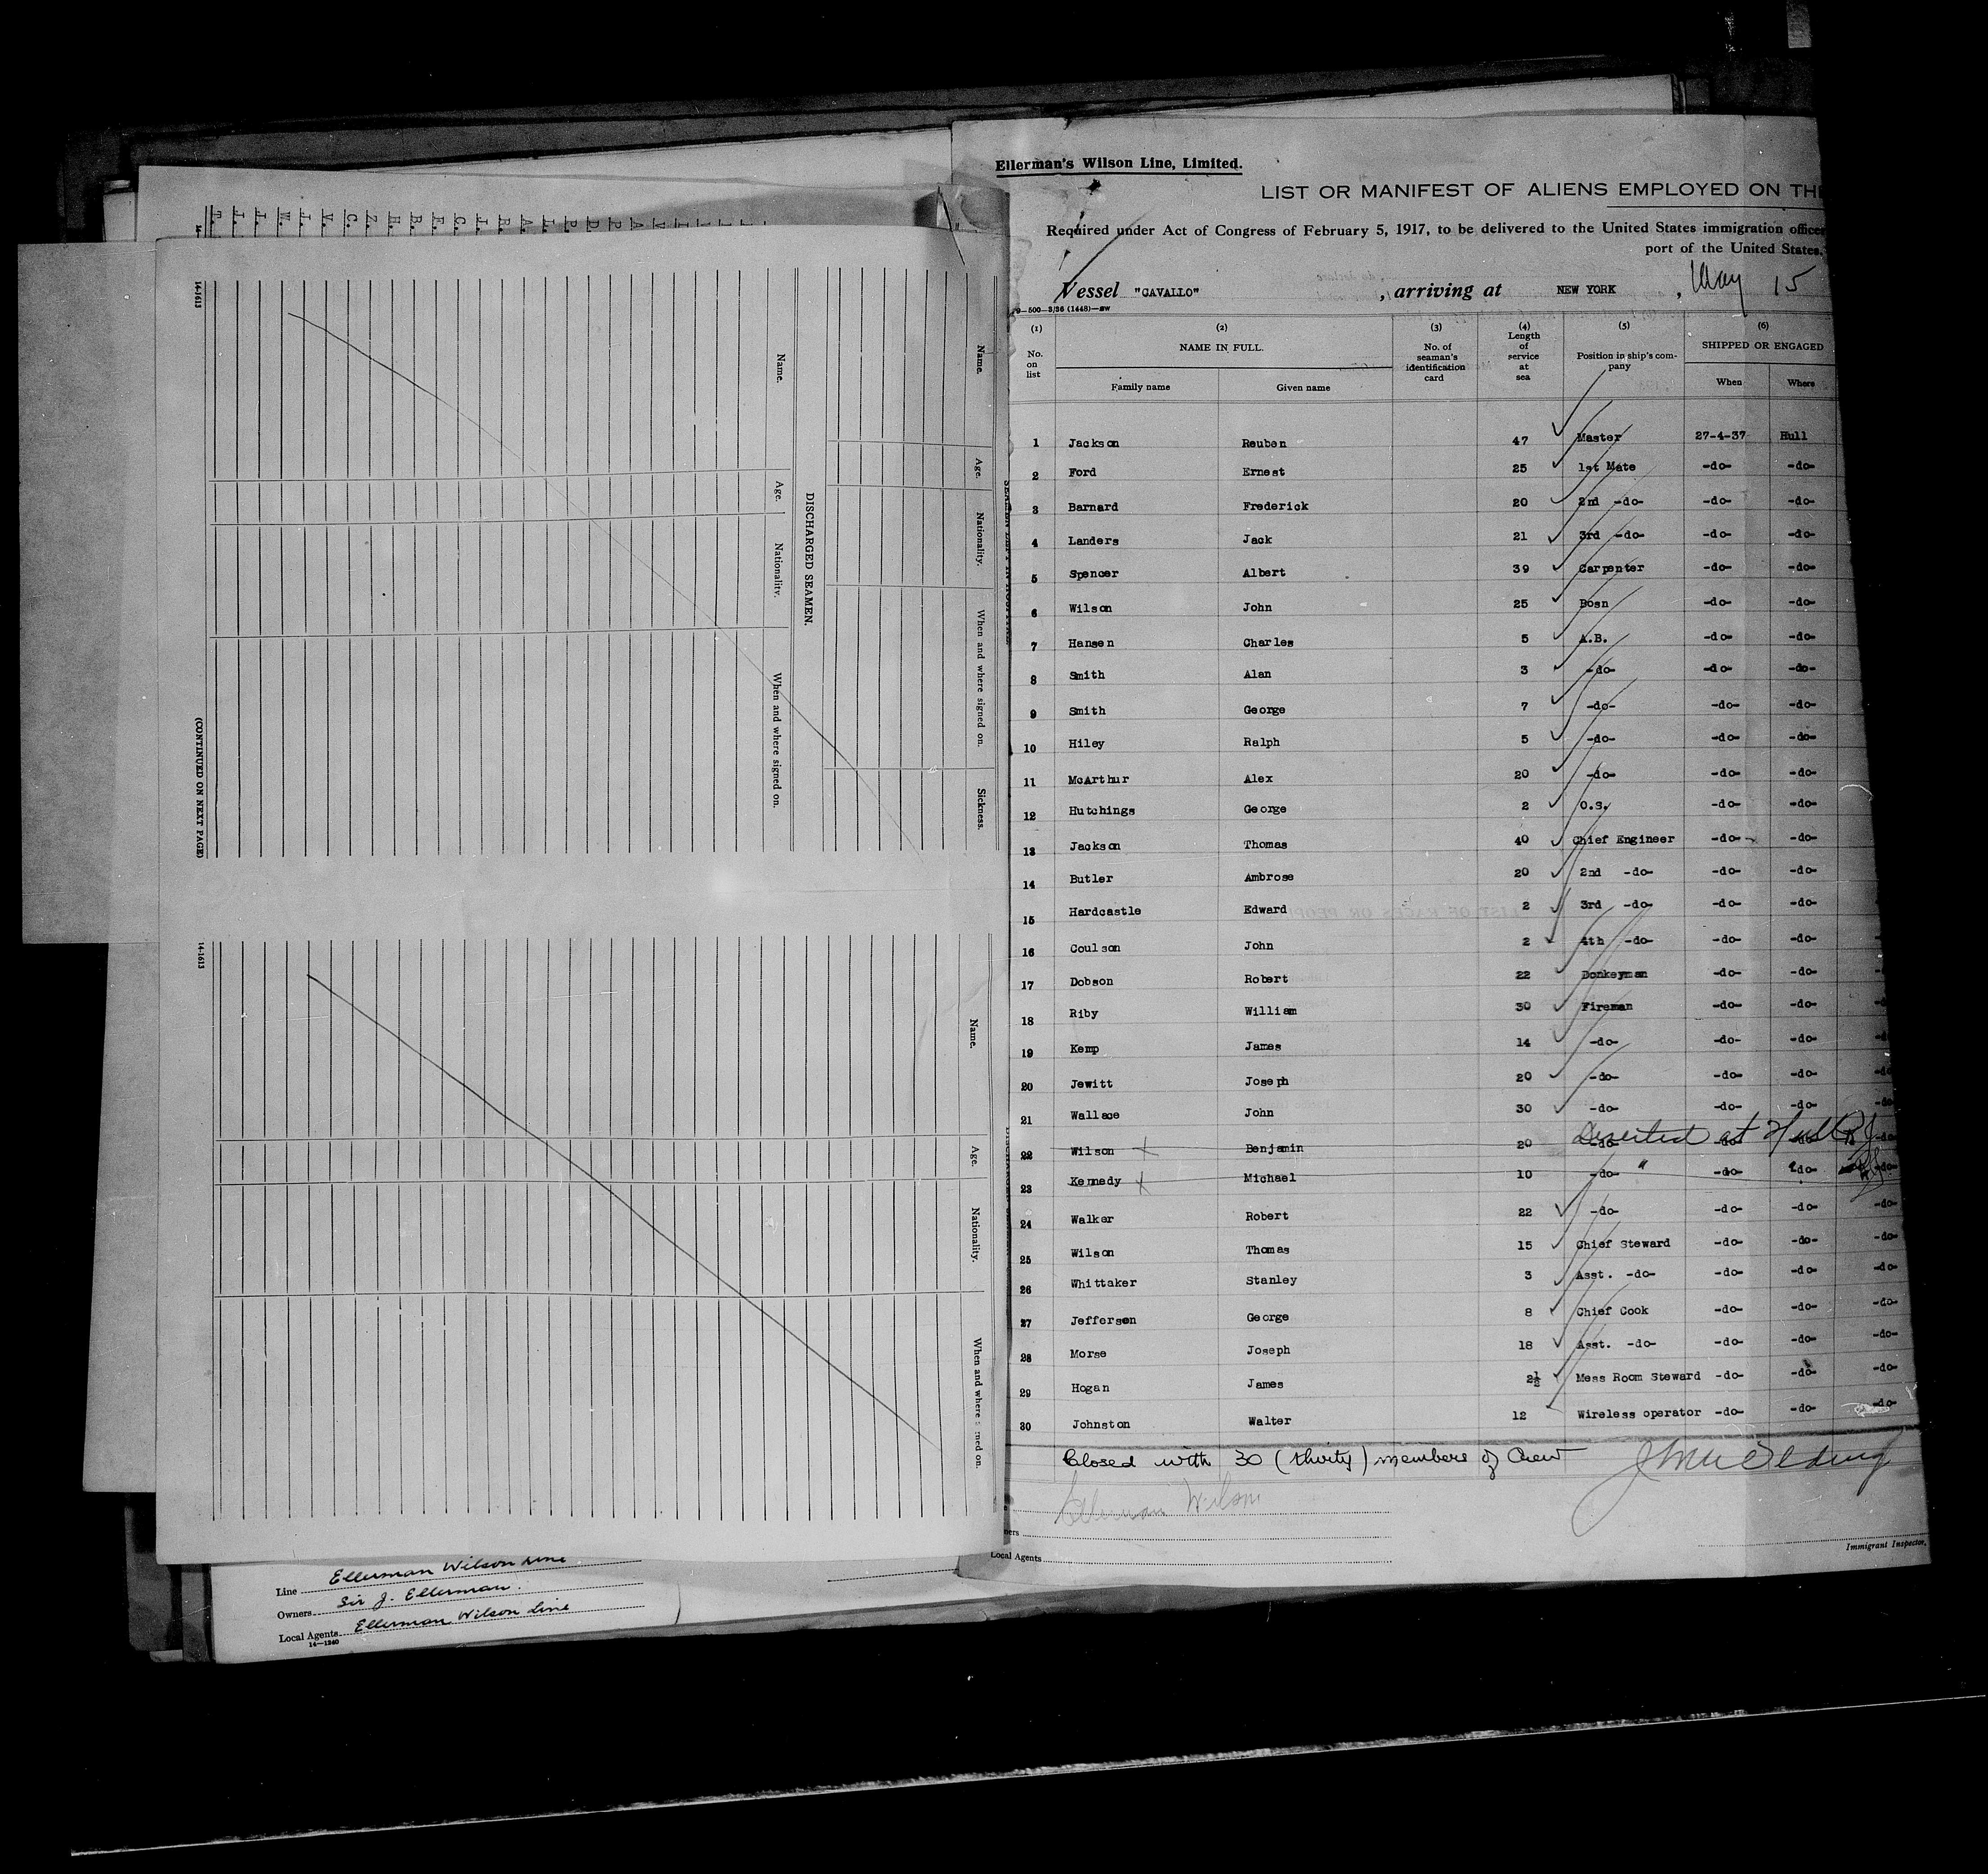 Ellerman's Wilson Line, Limited.
LIST OR MANIFEST OF ALIENS EMPLOYED ON THE
Required under Act of Congress of February 5, 1917, to be delivered to the United States immigration officer
port of the United States.
Vessel "CAVALLO" , arriving at NEW YORK , May 15
9—500—3/36 (1448)—
(1) (2) (3) (4) (5) (6)
No. on list NAME IN FULL. No. of seaman's identification card Length of service at sea Position in ship's company SHIPPED OR ENGAGED
Family name Given name When Where
1 Jackson Reuben 47 Master 27-4-37 Hull
2 Ford Ernest 25 1st Mate -do- -do-
3 Barnard Frederick 20 2nd -do- -do- -do-
4 Landers Jack 21 3rd -do- -do- -do-
5 Spencer Albert 39 Carpenter -do- -do-
6 Wilson John 25 Bosn -do- -do-
7 Hansen Charles 5 A.B. -do- -do-
8 Smith Alan 3 -do- -do- -do-
9 Smith George 7 -do- -do- -do-
10 Hiley Ralph 5 -do- -do- -do-
11 McArthur Alex 20 -do- -do- -do-
12 Hutchings George 2 O.S. -do- -do-
13 Jackson Thomas 40 Chief Engineer -do- -do-
14 Butler Ambrose 20 2nd -do- -do- -do-
15 Hardcastle Edward 2 3rd -do- -do- -do-
16 Coulson John 2 4th -do- -do- -do-
17 Dobson Robert 22 Donkeyman -do- -do-
18 Riby William 30 Fireman -do- -do-
19 Kemp James 14 -do- -do- -do-
20 Jewitt Joseph 20 -do- -do- -do- -do
21 Wallace John 30 -do- -do- -do- -do
Deserted at Hull RJ
22 Wilson x Benjamin 20 -do- -do- -do- -do-
23 Kennedy x Michael 10 -do- " -do- -do- -do-
24 Walker Robert 22 -do- -do- -do- -do-
25 Wilson Thomas 15 Chief Steward -do- -do- -do-
26 Whittaker Stanley 3 Asst. -do- -do- -do- -do-
27 Jefferson George 8 Chief Cook -do- -do- -do-
28 Morse Joseph 18 Asst. -do- -do- -do- -do-
29 Hogan James 2½ Mess Room Steward -do- -do- -do-
30 Johnston Walter 12 Wireless operator -do- -do- -do-
Closed with 30 (thirty) members of Crew
Ellerman Wilson
ners
Local Agents
Immigrant Inspector.
T. J. I. W. J. V. C. Z. H. B. F. G. J. R. A. L. P. D. P. A V
14-1613
Name. Age. Nationality. When and where signed on. Sickness.
DISCHARGED SEAMEN.
Name. Age. Nationality. When and where signed on.
(CONTINUED ON NEXT PAGE)
14-1613
Name. Age. Nationality. When and where signed on.
Line Ellerman Wilson Line
Owners Sir J. Ellerman.
Local Agents Ellerman Wilson Line
14—1240